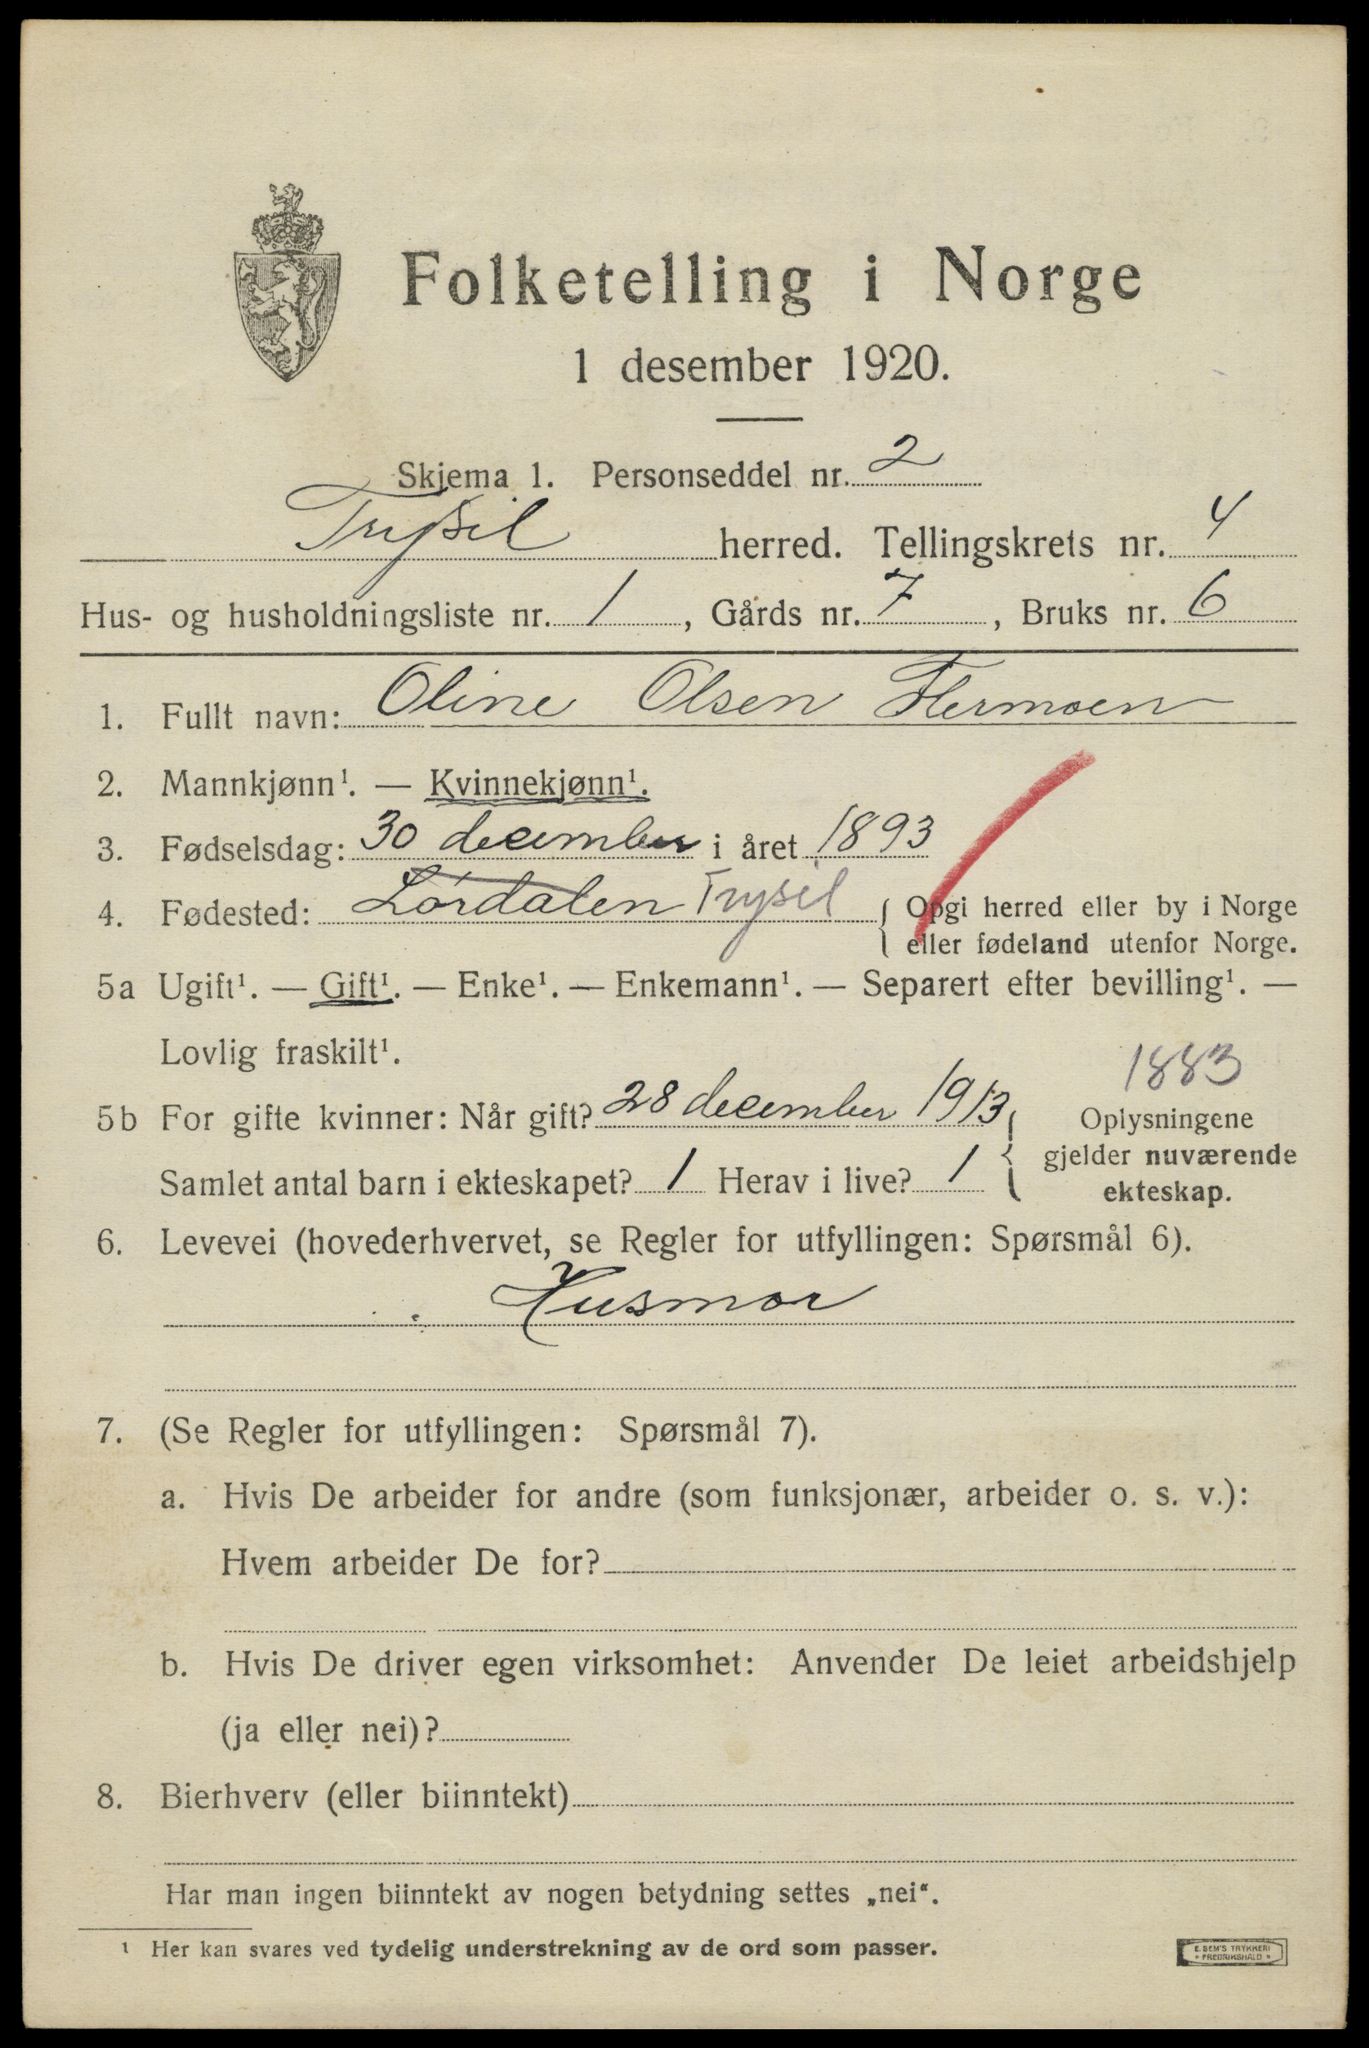 Folketelling i Norge
1 desember 1920.
Skjema 1. Personseddel nr. 2
Trysil herred. Tellingskrets nr. 4
Hus- og husholdningsliste nr. 1, Gårds nr. 7, Bruks nr. 6
1. Fullt navn: Oline Olsen Flermoen
2. Mannkjønn¹. — Kvinnekjønn¹.
3. Fødselsdag: 30 december i året 1893
4. Fødested: Lørdalen Trysil { Opgi herred eller by i Norge
eller fødeland utenfor Norge.
5a Ugift¹. — Gift¹. — Enke¹. — Enkemann¹. — Separert efter bevilling¹. —
Lovlig fraskilt¹.
1883
5b For gifte kvinner: Når gift? 28 december 1913 { Oplysningene
gjelder nuværende
Samlet antal barn i ekteskapet? 1 Herav i live? 1 ekteskap.
6. Levevei (hovederhvervet, se Regler for utfyllingen: Spørsmål 6).
Husmor
7. (Se Regler for utfyllingen: Spørsmål 7).
a. Hvis De arbeider for andre (som funksjonær, arbeider o. s. v.):
Hvem arbeider De for?
b. Hvis De driver egen virksomhet: Anvender De leiet arbeidshjelp
(ja eller nei)?
8. Bierhverv (eller biinntekt)
Har man ingen biinntekt av nogen betydning settes „nei“.
¹ Her kan svares ved tydelig understrekning av de ord som passer.
E. SEM'S TRYKKERI
• FREDRIKSHALD •